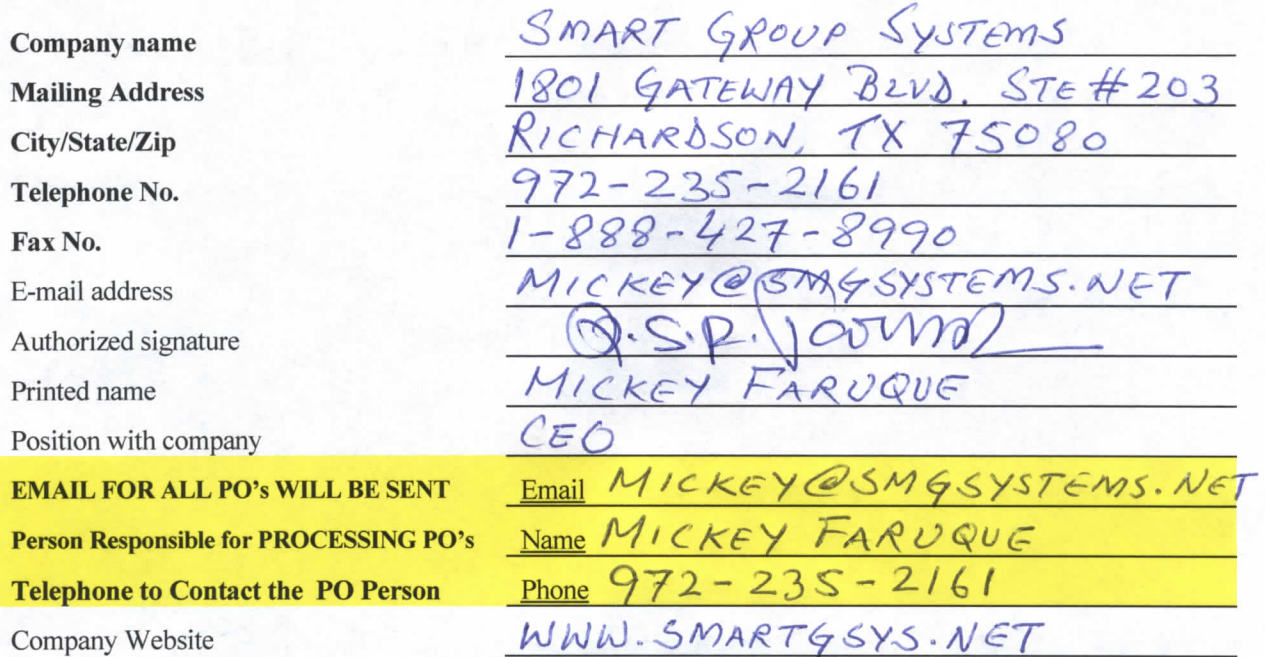 Company name SMART GROUP SYSTEMS
Mailing Address 1801 GATEWAY BLVD. STE #203
City/State/Zip RICHARDSON, TX 75080
Telephone No. 972-235-2161
Fax No. 1-888-427-8990
E-mail address MICKEY@SMGSYSTEMS.NET
Authorized signature
Printed name MICKEY FARUQUE
Position with company CEO
EMAIL FOR ALL PO's WILL BE SENT Email MICKEY@SMGSYSTEMS.NET
Person Responsible for PROCESSING PO's Name MICKEY FARUQUE
Telephone to Contact the PO Person Phone 972-235-2161
Company Website WWW.SMARTGSYS.NET